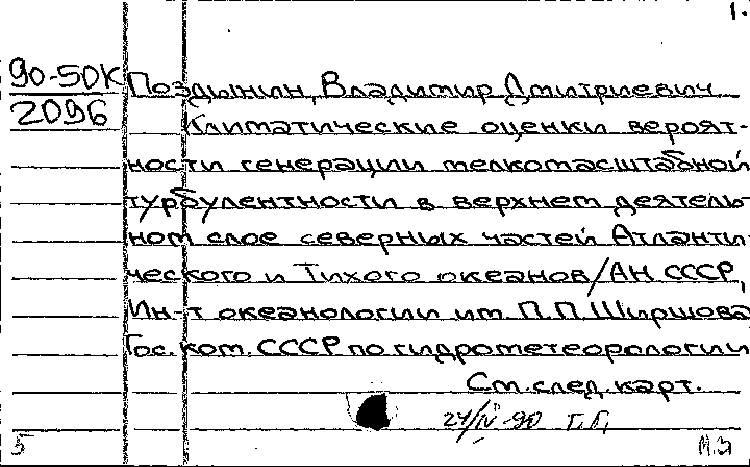 1.
90-5DK Поздынин, Владимир Дмитриевич
2096 Климатические оценки вероят-
ности генерации мелкомасштабной
турбулентности в верхнем деятель
ном слое северных частей Атланти
ческого и Тихого океанов/АН СССР,
Ин-т океанологии им. П.П. Ширшова
Гос. ком. СССР по гидрометеорологии
См. след. карт.
24/IV-90 Г.Г.
5